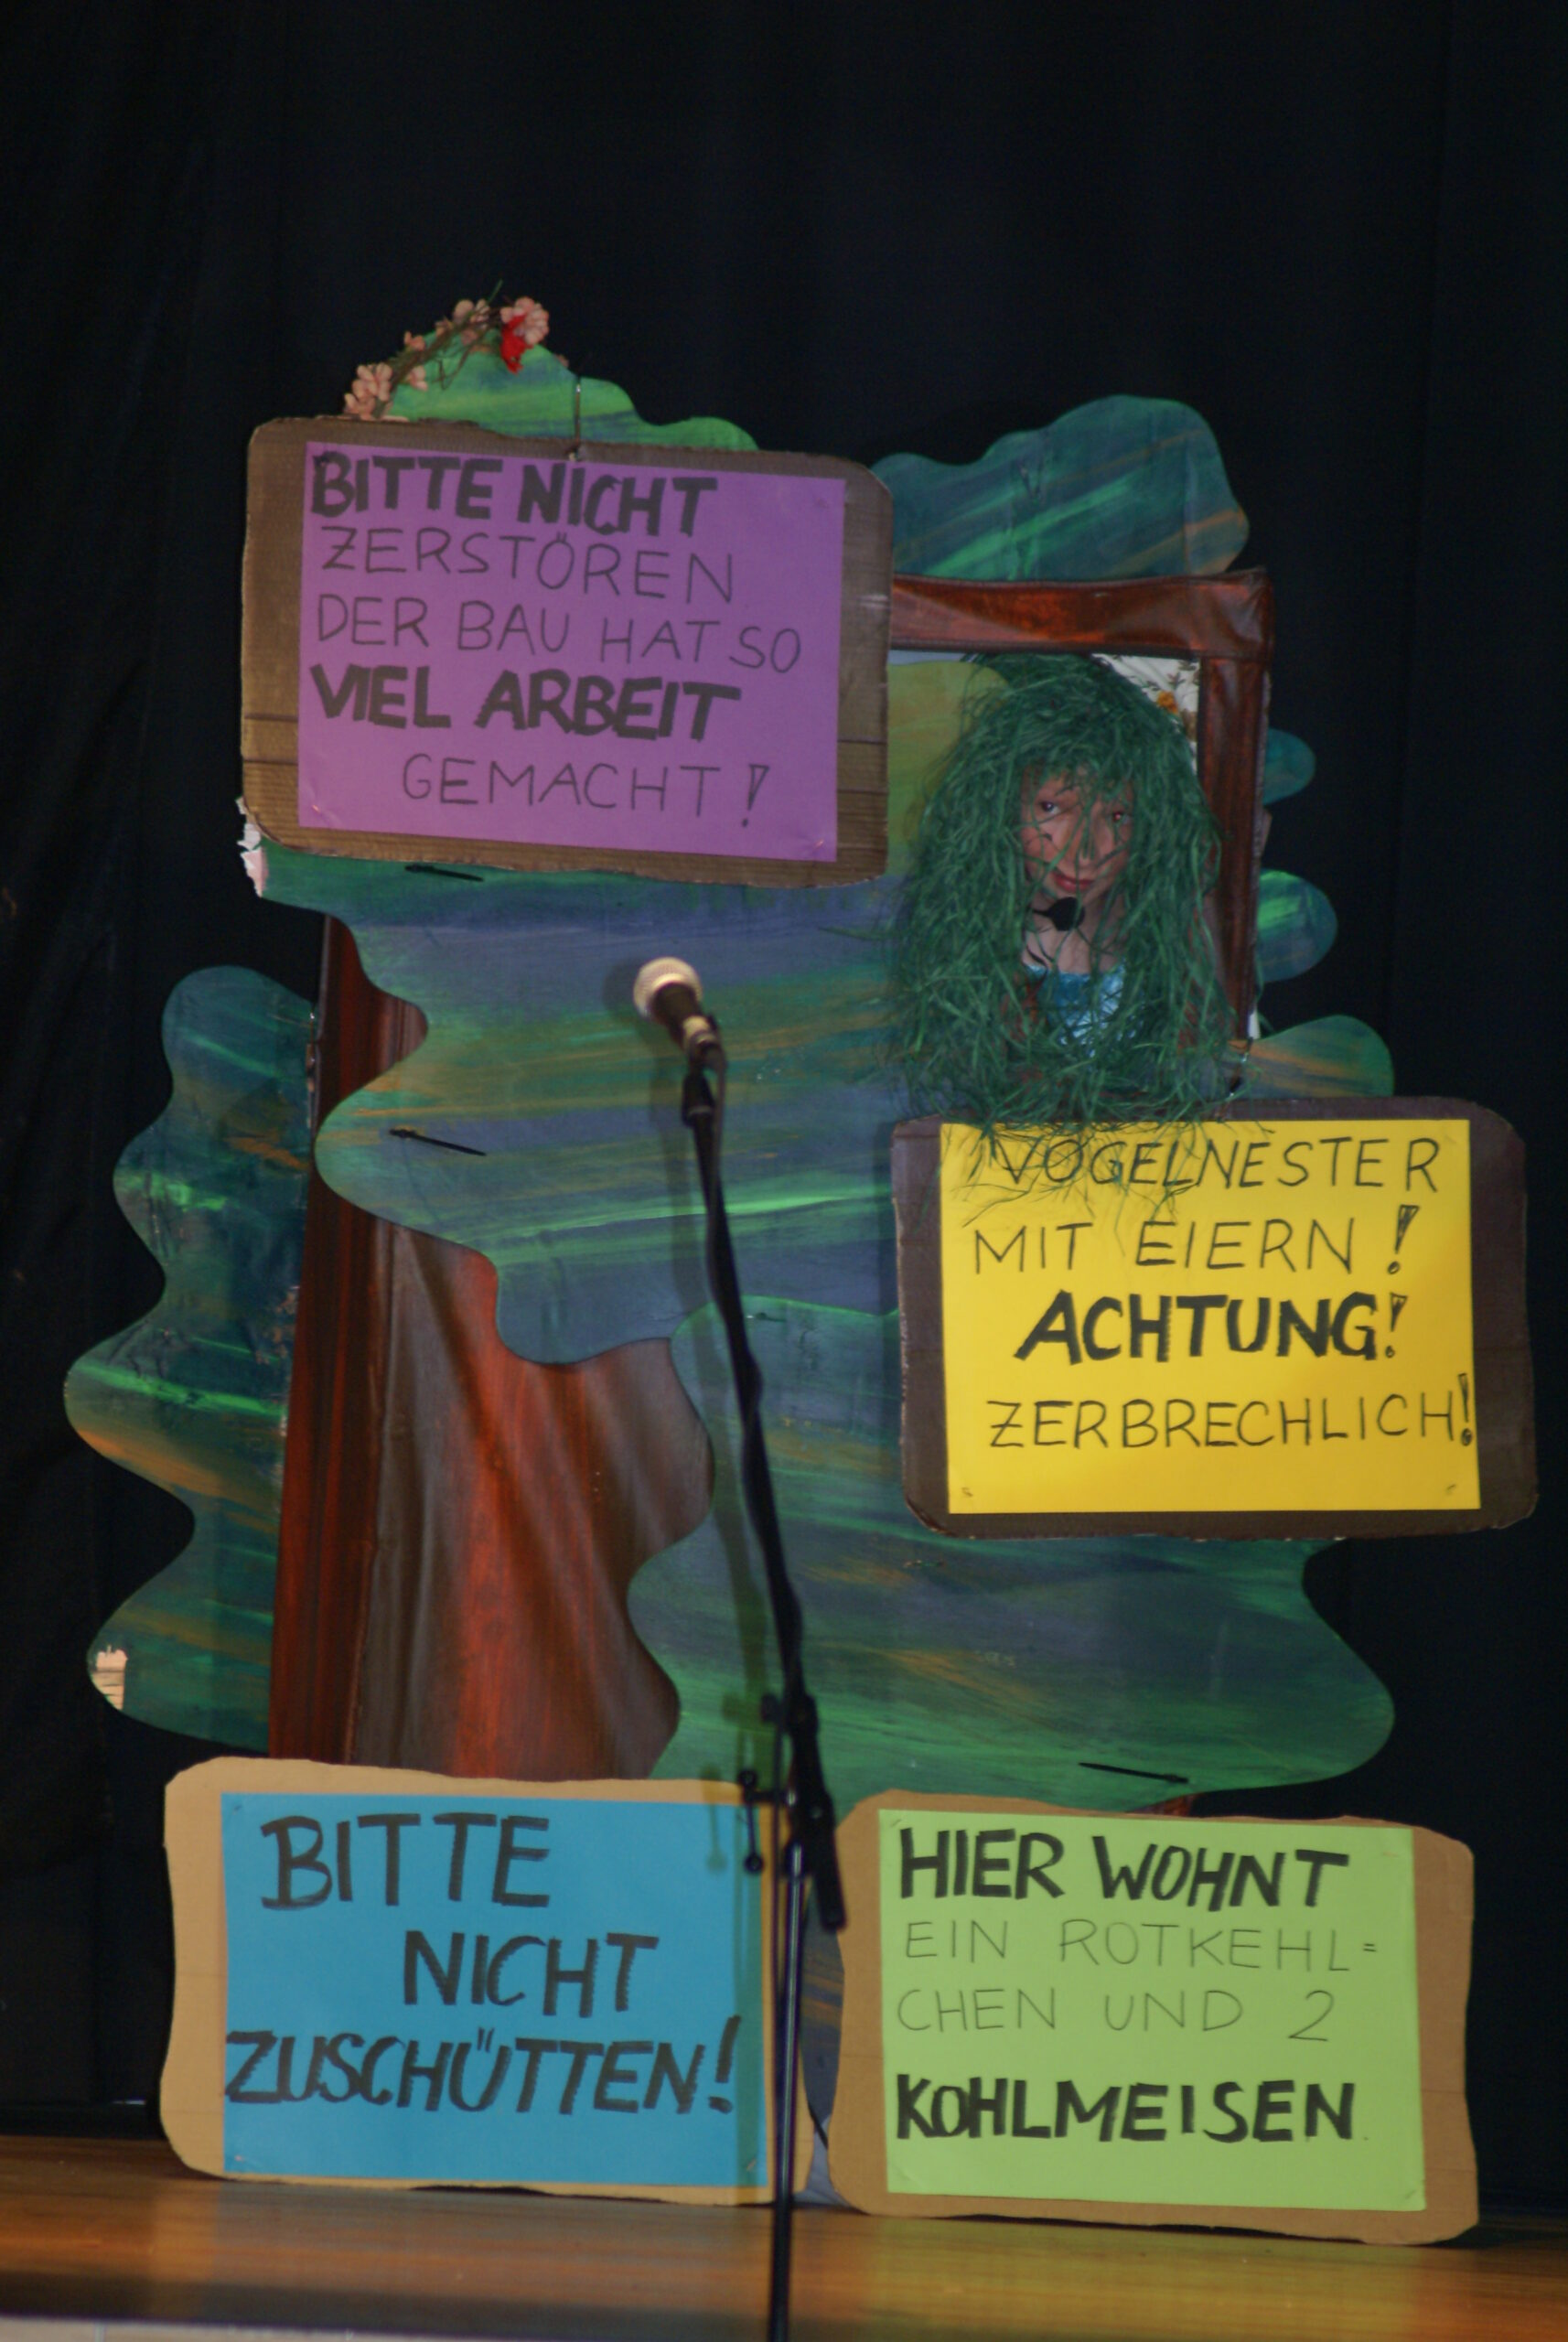 BITTE NICHT
ZERSTÖREN
DER BAU HAT SO
VIEL ARBEIT
GEMACHT!
VOGELNESTER
MIT EIERN!
ACHTUNG!
ZERBRECHLICH!
BITTE
NICHT
ZUSCHÜTTEN!
HIER WOHNT
EIN ROTKEHL=
CHEN UND 2
KOHLMEISEN